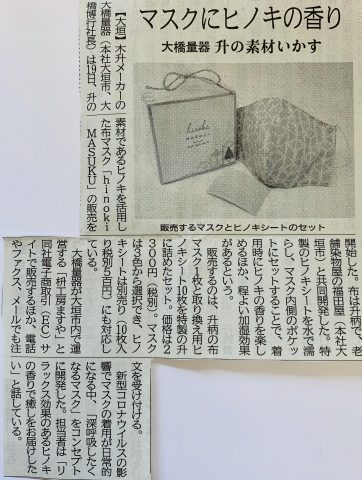 マスクにヒノキの香り
大橋量器 升の素材いかす
hinoki
masuku
販売するマスクとヒノキシートのセット
【大垣】木升メーカーの
大橋量器（本社大垣市、大
橋博行社長）は19日、升の
素材であるヒノキを活用し
た布マスク「hinoki
MASUKU」の販売を
開始した。布は升柄で、老
舗染物屋の福田屋（本社大
垣市）と共同開発した。特
製のヒノキシートを水で濡
らし、マスク内側のポケッ
トにセットすることで、着
用時にヒノキの香りを楽し
めるほか、程よい加湿効果
があるという。
販売するのは、升柄の布
マスク1枚と取り換え用ヒ
ノキシート10枚を特製の升
に詰めたセット。価格は2
300円（税別）。マスク
は3色から選択でき、ヒノ
キシートは別売り（10枚入
り税別5百円）にも対応し
ている。
大橋量器が大垣市内で運
営する「枡工房ますや」と
同社電子商取引（EC）サ
イトで販売するほか、電話
やファクス、メールでも注
文を受け付ける。
新型コロナウイルスの影
響でマスクの着用が日常的
になる中、「深呼吸したく
なるマスク」をコンセプト
に開発した。担当者は「リ
ラックス効果のあるヒノキ
の香りで癒しをお届けした
い」と話している。